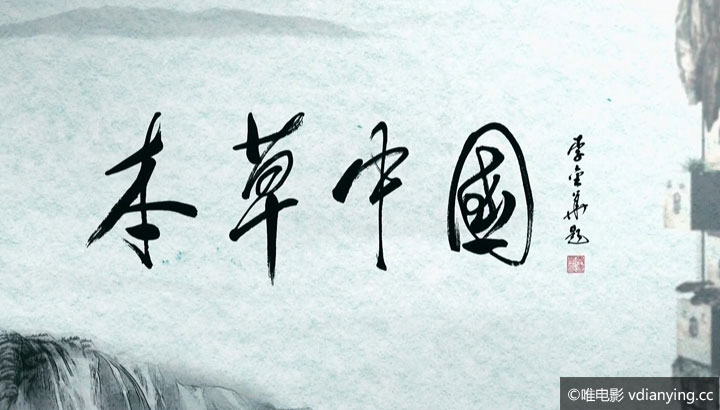 本草中國
李金華题
©唯电影 vdianying.cc